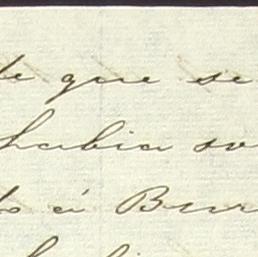 te que se
habia so
to á Bur